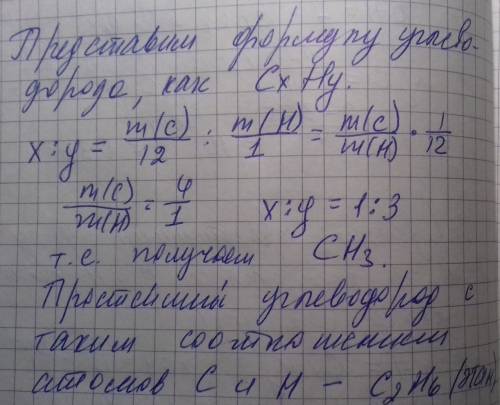 Представим формулу углево-
дорода, как CxHy.
x:y = m(C)/12 : m(H)/1 = m(C)/m(H) · 1/12
m(C)/m(H) = 4/1 x:y = 1:3
т.е. получаем CH₃.
Простейший углеводород с
таким соотношением
атомов C и H – C₂H₆ (этан)